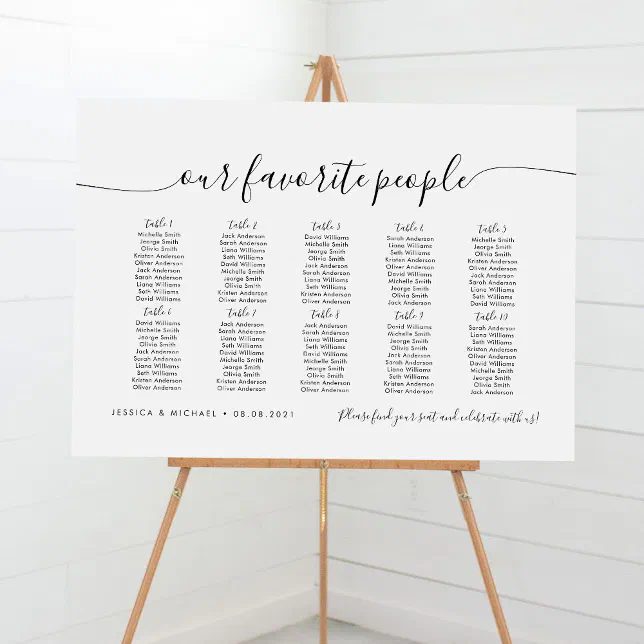 our favorite people
Table 1
Michelle Smith
Jeorge Smith
Olivia Smith
Kristen Anderson
Oliver Anderson
Jack Anderson
Sarah Anderson
Liana Williams
Seth Williams
David Williams
Table 2
Jack Anderson
Sarah Anderson
Liana Williams
Seth Williams
David Williams
Michelle Smith
Jeorge Smith
Olivia Smith
Kristen Anderson
Oliver Anderson
Table 3
David Williams
Michelle Smith
Jeorge Smith
Olivia Smith
Jack Anderson
Sarah Anderson
Liana Williams
Seth Williams
Kristen Anderson
Oliver Anderson
Table 4
Sarah Anderson
Liana Williams
Seth Williams
Kristen Anderson
Oliver Anderson
David Williams
Michelle Smith
Jeorge Smith
Olivia Smith
Jack Anderson
Table 5
Michelle Smith
Jeorge Smith
Olivia Smith
Jack Anderson
Kristen Anderson
Oliver Anderson
Sarah Anderson
Liana Williams
Seth Williams
David Williams
Table 6
David Williams
Michelle Smith
Jeorge Smith
Olivia Smith
Jack Anderson
Sarah Anderson
Liana Williams
Seth Williams
Kristen Anderson
Oliver Anderson
Table 7
Jack Anderson
Sarah Anderson
Kristen Anderson
Oliver Anderson
Liana Williams
Seth Williams
David Williams
Michelle Smith
Jeorge Smith
Olivia Smith
Table 8
Jack Anderson
Sarah Anderson
Liana Williams
Seth Williams
David Williams
Michelle Smith
Jeorge Smith
Olivia Smith
Kristen Anderson
Oliver Anderson
Table 9
David Williams
Sarah Anderson
Liana Williams
Seth Williams
Michelle Smith
Jeorge Smith
Olivia Smith
Jack Anderson
Kristen Anderson
Oliver Anderson
Table 10
Sarah Anderson
Liana Williams
Seth Williams
Kristen Anderson
Oliver Anderson
David Williams
Michelle Smith
Jeorge Smith
Olivia Smith
Jack Anderson
JESSICA & MICHAEL • 08.08.2021
Please find your seat and celebrate with us!